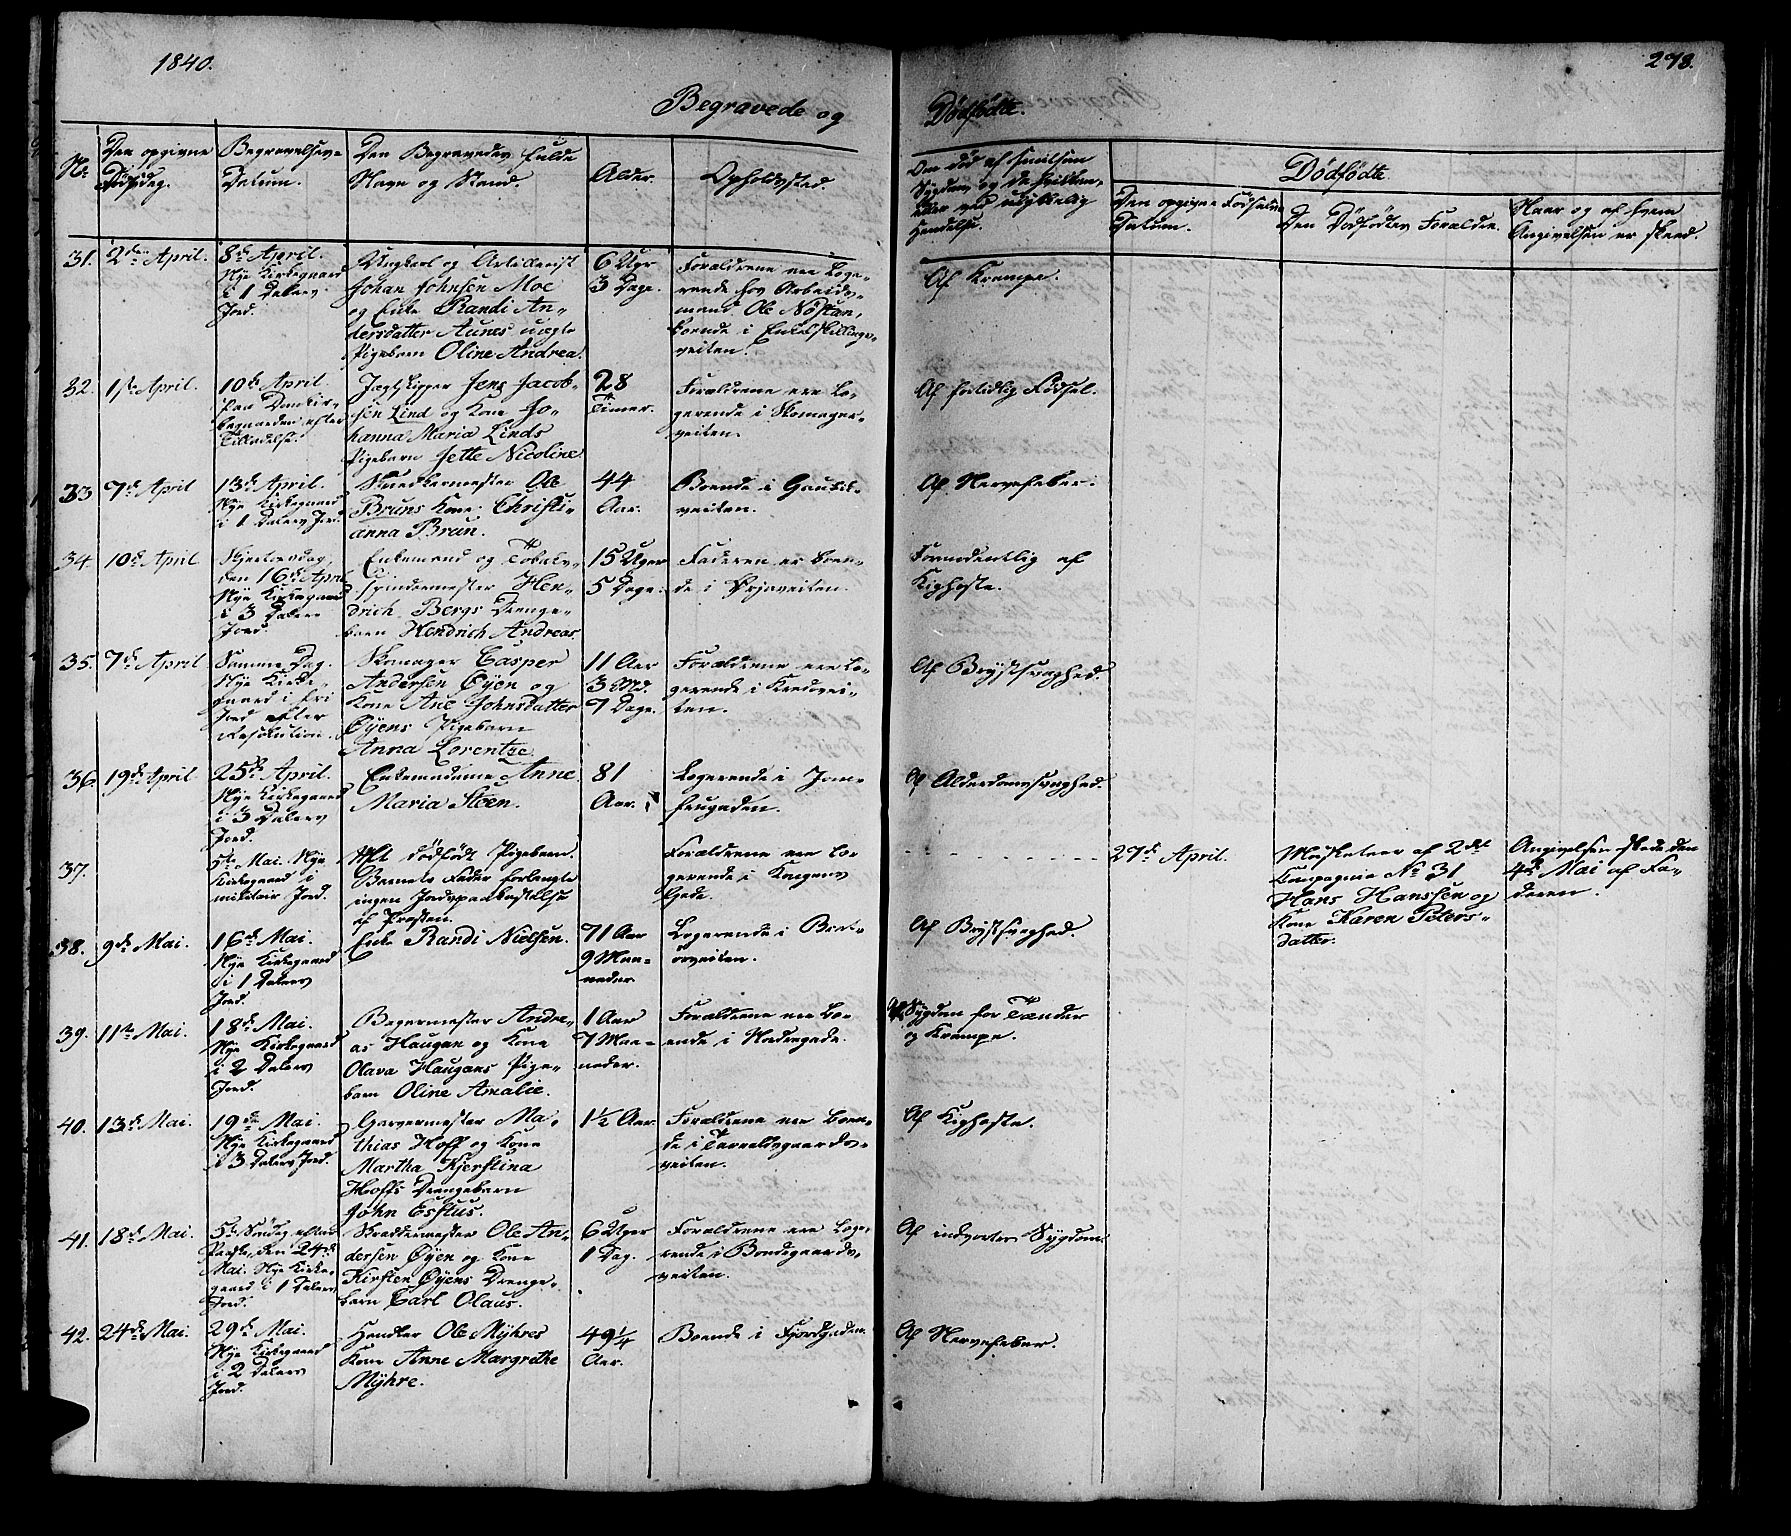 1840.
278.
Begravede og Dødfødte.
No
Den opgivne
Dødsdag.
Begravelsens
Datum.
Den Begravedes Fulde
Navn og Stand.
Alder.
Opholdssted.
Om død af smitsom
Sygdom, og da hvilken,
eller ved ulykkelig
Hændelse.
Dødfødte.
Den opgivne Fødsels
Datum.
Den Dødfødtes Forældre.
Naar og af hvem
Angivelsen er skeed.
31. 2den April.
8de April.
Nye Kirkegaard
i 1 Dalers
Jord.
Ungkarl og Artillerist
Johan Johnsen Moe
og Enke Randi An-
dersdatter Aunes uægte
Pigebarn Oline Andrea.
6 Uger
3 Dage.
Forældrene ere Loge-
rende hos Arbeids-
mand Ole Nøstan,
boende i Enkeltskillings-
veiten.
Af Krampe.
32. 1ste April.
10de April.
paa Domkir-
kegaarden efter
Tilladelse.
Jagtskipper Jens Jacob-
sen Lind og Kone Jo-
hanna Maria Linds
Pigebarn Jette Nicoline
28
Timer.
Forældrene ere Lo-
gerende i Skomager-
veiten.
Af fortidlig Fødsel.
33 7de April
13de April.
Nye Kirkegaard
i 1 Dalers Jord.
Skrædermester Ole
Bruns Kone Christi-
anna Brun.
44
Aar.
Boende i Gaubek-
veiten.
Af Nervefeber.
34. 10de April
Skjertorsdag,
den 16de April
Nye Kirkegaard
i 3 Dalers
Jord.
Enkemand og Tobaks-
spindermester Hen-
drich Bergs Drenge-
barn Hendrich Andreas
15 Uger
5 Dage.
Faderen er boen-
de i Ørjaveiten.
Formodentlig af
Kighoste.
35. 7de April
Samme Dag.
Nye Kirke-
gaard i fri
Jord efter
Resolution.
Skomager Casper
Andersen Øyen og
Kone Ane Johnsdatter
Øyens Pigebarn
Anna Lorentze.
11 Aar
3 Md.
7 Dage.
Forældrene ere Lo-
gerende i Krudvei-
ten.
Af Brystsvaghed.
36. 19de April
25de April.
Nye Kirkegaard
i 3 Dalers
Jord.
Enkemadame Anne
Maria Steen.
81
Aar.
Logerende i Jom-
frugaden.
Af Alderdomssvaghed.
37.
5te Mai. Nye
Kirkegaard i
militair Jord.
Et dødfødt Pigebarn.
Barnets Fader forlangte
ingen Jordspaakastelse
af Præsten.
Forældrene ere Lo-
gerende i Kongens
Gade.
27de April.
Musketeer af 2det
Compagnie No 31
Hans Hanssen og
Kone Karen Peters-
datter.
Angivelsen skede den
4de Mai af Fa-
deren.
38. 9de Mai.
16de Mai.
Nye Kirkegaard
i 1 Dalers
Jord.
Enke Randi Nielsen.
71 Aar
9 Maa-
neder.
Logerende i Brat-
ørveiten.
Af Brystsvaghed.
39. 11te Mai.
18de Mai.
Nye Kirkegaard
i 2 Dalers
Jord.
Bagermester Andre-
as Haugan og Kone
Olava Haugans Pige-
barn Oline Amalie.
1 Aar
7 Maa-
neder.
Forældrene ere Bo-
ende i Nordregade.
Af Sygdom for Tænder
og Krampe.
40. 13de Mai.
19de Mai.
Nye Kirkegaard
i 3 Dalers Jord.
Garvermester Ma-
thias Hoff og Kone
Martha Kjerstina
Hoffs Drengebarn
John Estius.
1½ Aar.
Forældrene ere boen-
de i Taraldsgaards-
veiten.
Af Kighoste.
41. 18de Mai.
5te Søndag efter
Paaske, den 24de
Mai. Nye Kirke-
gaard i 1 Dalers
Jord.
Skreddermester Ole An-
dersen Øyen og Kone
Kirsten Øyens Drenge-
barn Carl Olaus.
6 Uger
1 Dag.
Forældrene ere Loge-
rende i Bondegaards-
veiten.
Af indvortes Sygdom.
42. 24de Mai.
29de Mai.
Nye Kirkegaard
i 2 Dalers
Jord.
Handler Ole Myhres
Kone Anne Margrethe
Myhre.
49¼
Aar.
Boende i Fjordgaden
Af Nervefeber.